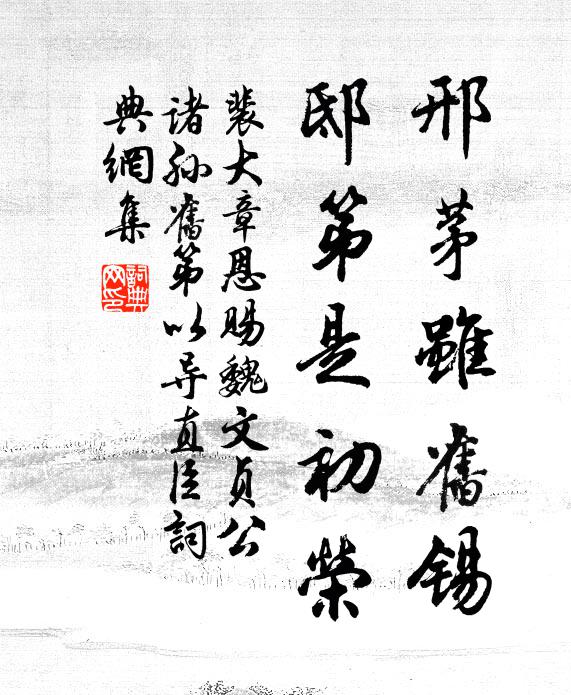 邢茅雖舊錫
邸第是初榮
裴大章恩賜魏文貞公
諸孫舊第以导直臣詞
典網集
詞典
网印